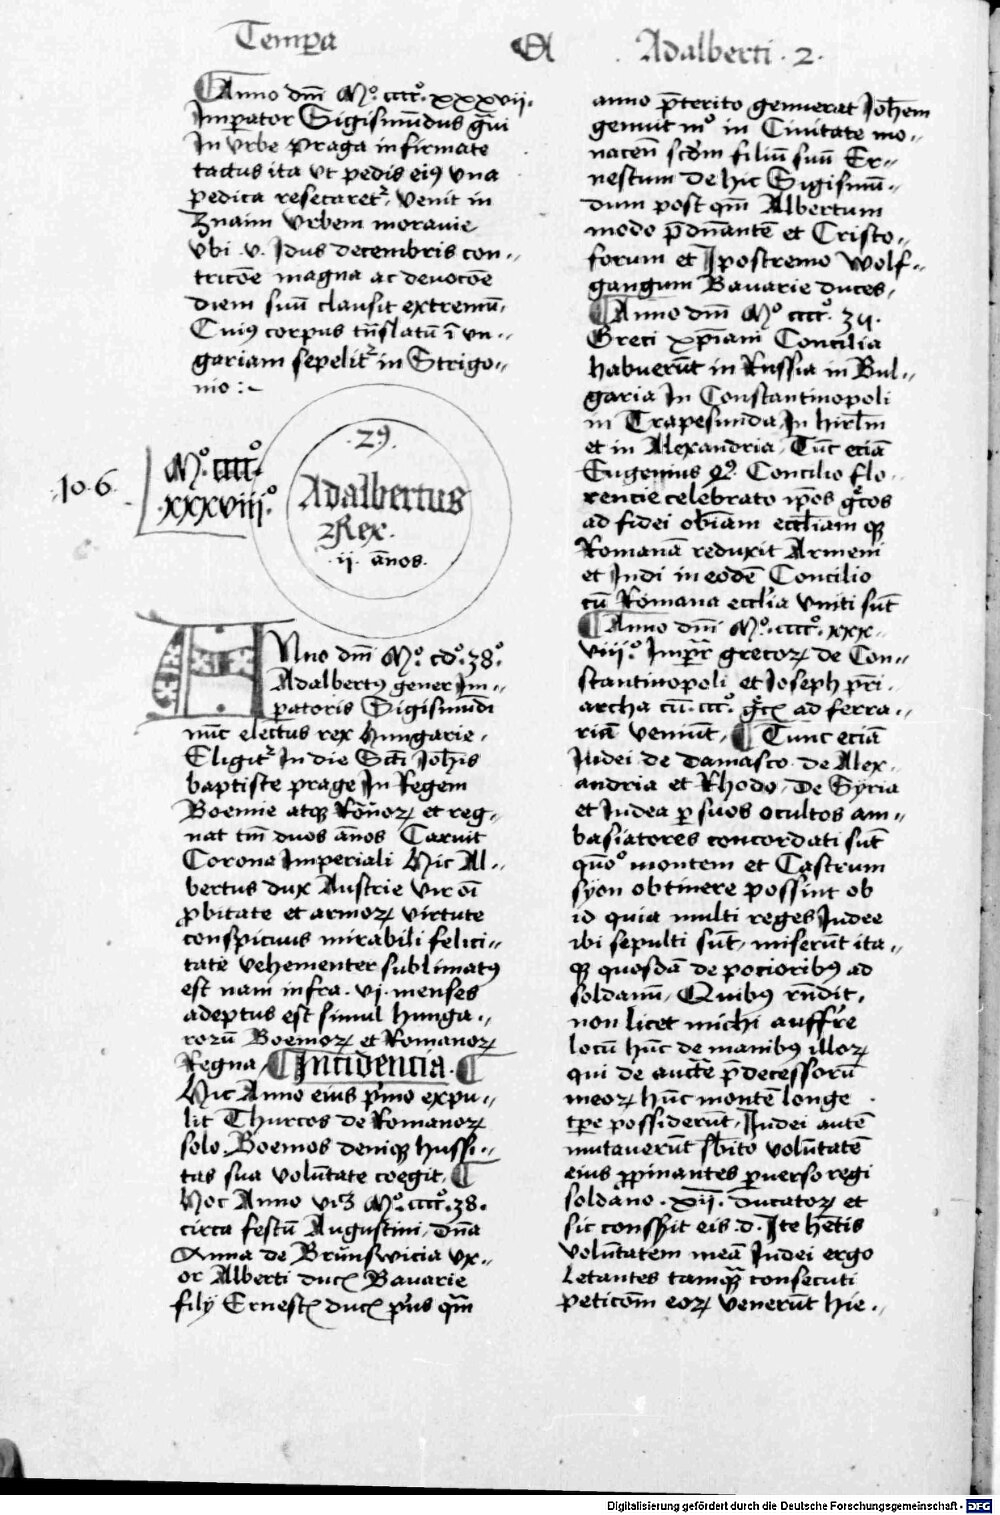 Tempa A Adalberti . 2 .
Anno dm̄ Mº. ccccº. xxxvii.
Imperator Sigismūdus gͣui
In vrbe praga infirmate
tactus ita vt pedis eiꝰ vna
pedica resecaret᷑, venit in
Znaim vrbem moravie
vbi .v. Idus decembris con„
tricōe magna ac devocōe
diem suū clausit extremū.
Cuiꝰ corpus trāslatū ī vn„
gariam sepelit᷑ in Strigo„
nio :~
106.
Mº. ccccº.
.xxxviiiº.
.29.
Adalbertus
Rex.
.ii. ānos.
ANno dm̄ Mº. cdº. 38º.
Adalbertꝰ gener Im„
peratoris Sigismūdi
nūc electus rex hungarie.
Eligit᷑ In die Scti Joh̄is
baptiste prage In Regem
Boemie atqꝫ Rōnorꝫ et reg„
nat tm̄ duos ānos Caruit
Corona Imperiali Hic Al„
bertus dux Austrie vir oī
ꝓbitate et armorꝫ virtute
conspicuus mirabili felici„
tate vehementer sublimatꝰ
est nam infra .vi. menses
adeptus est simul hunga„
rorū Boemorꝫ et Romanorꝫ
Regna, Incidencia.
Hic Anno eius pͥmo expu„
lit Thurcos de Romanorꝫ
solo. Boemos deniqꝫ hussi„
tas sua volūtate coegit.
Hoc Anno vidꝫ Mº. ccccº. 38.
circa festū Augustini, dn̄a
Anna de Brunswicia vx„
or Alberti ducꝭ Bavarie
filij Ernestꝭ ducꝭ pͥus qͣm
anno p̄terito genuerat Joh̄em
genuit mº in Civitate mo„
nacen̄ scd̄m filiū suū Er„
nestum de hic Sigismū„
dum post qm̄ Albertum
modo p̄dn̄antē et Cristo„
forum et Ipostremo wolf„
gangum Bavarie duces.
Anno dm̄ Mº ccccº. 34.
Greci xp̄iani Concilia
habuerūt in Russia in Bul„
garia In Constantinopoli
in Trapesunda, In hirl̄m
et in Alexandria, Tūc eciā
Eugenius 4º. Concilio flo„
rencie celebrato ip̄os gͬcos
ad fidei obīam eccl̄iam qꝫ
Romanā reduxit Armeni
et Indi in eodē Concilio
cū Romana eccl̄ia vniti sūt
Anno dm̄ Mº. ccccº. xxx„
viiiº. Impr̄ grecorꝫ de Con„
stantinopoli et Joseph pr̄i„
archa cū .cccº. gͬcꝭ ad ferra„
riā veniūt, Tunc eciā
Iudei de damasco de Alex„
andria et Rhodo, De Syria
et Iudea ꝑ suos ocultos am„
basiatores concordati sūt
qūoº montem et Castrum
syon obtinere possint ob
id quia multi reges Iudee
ibi sepulti sūt, miserūt ita„
qꝫ quosdā de pocioribꝰ ad
soldanū, Quibꝰ rn̄dit.
non licet michi auffr̄e
locū hūc de manibꝰ illorꝫ
qui de auctē p̄decessorū
meorꝫ hūc montē longe
tp̄e possiderūt, Iudei autē
mutaverūt sb̄ito volūtatē
eius ꝓpinantes ꝑverso regi
soldano .xii. ducatorꝫ et
sic conss̄it eis .d. Ite hētis
volūtatem meā Iudei ergo
Letantes tamqͣꝫ consecuti
peticōm eorꝫ venerūt hie„
Digitalisierung gefördert durch die Deutsche Forschungsgemeinschaft - DFG